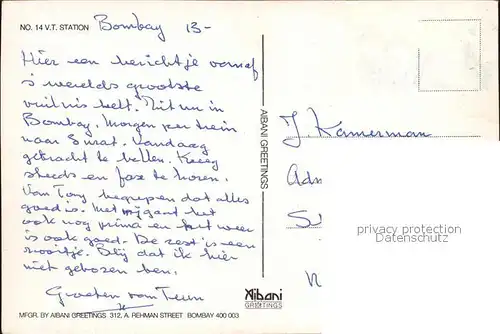 NO. 14 V.T. STATION Bombay 13-
Hier een berichtje vanaf
's werelds grootste
vuilnisbelt. Zit nu in
Bombay. Morgen per trein
naar Surat. Vandaag
getracht te bellen. Kreeg
steeds en fax te horen.
Van Tony begrepen dat alles
goed is. Met mij gaat het
ook nog prima en het weer
is ook goed. De rest is een
zooitje. Blij dat ik hier
niet geboren ben.
Groeten van Teun
MFGR. BY AIBANI GREETINGS 312, A. REHMAN STREET BOMBAY 400 003
AIBANI GREETINGS
Aibani
GREETINGS
J. Kamerman
privacy protection
Datenschutz